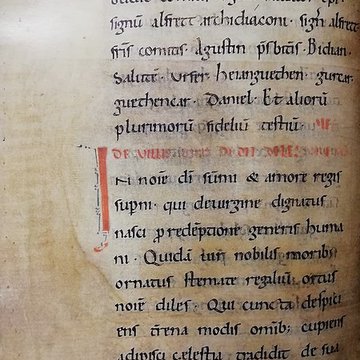 signū alfrett archidiaconi · signū alfrett
fr̄is comitis · Agustin p̄sbit̄i · Bidian ·
Salute · Urfer · heranguethen · gurcar ·
guethencar · Daniel · Et alioru
plurimorū fidelium testiū ·
IN noīe d̄i sūmi & amore regis
supni · qui de uirgine dignatus
nasci p redēptione generis huma
ni · Quidā uir nobilis moribus
ornatus stemate regaliū ortus
noīe diles · Qui cuncta despici
ens t̄rena modis om̄ib; cupiens
adipisci cælestia tradidit de sua